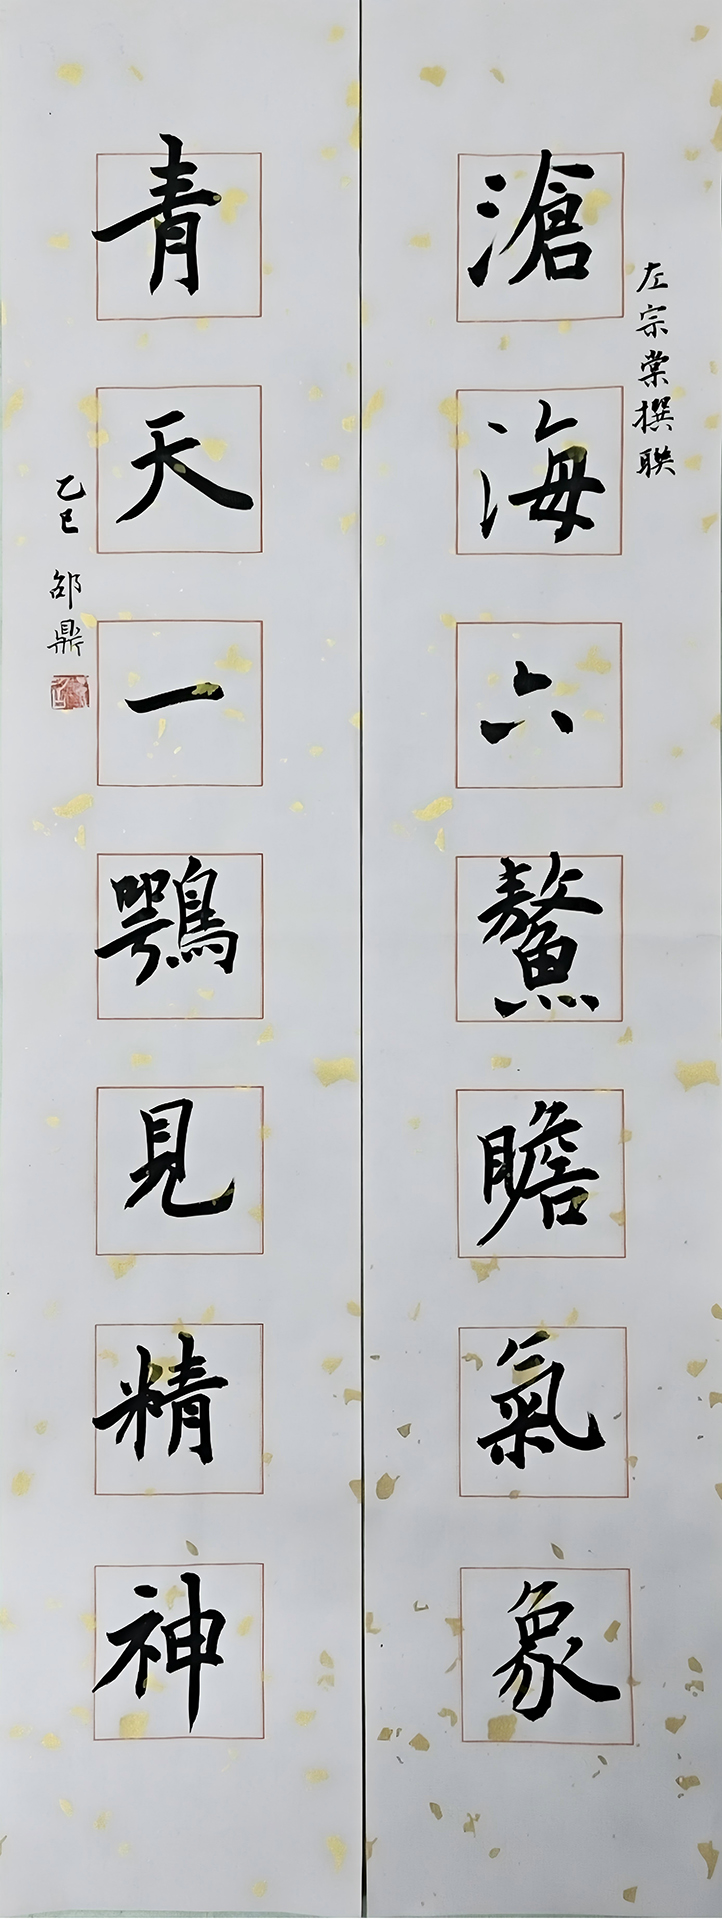 左宗棠撰聯
滄海六鰲瞻氣象
青天一鶚見精神
乙巳 邵鼎